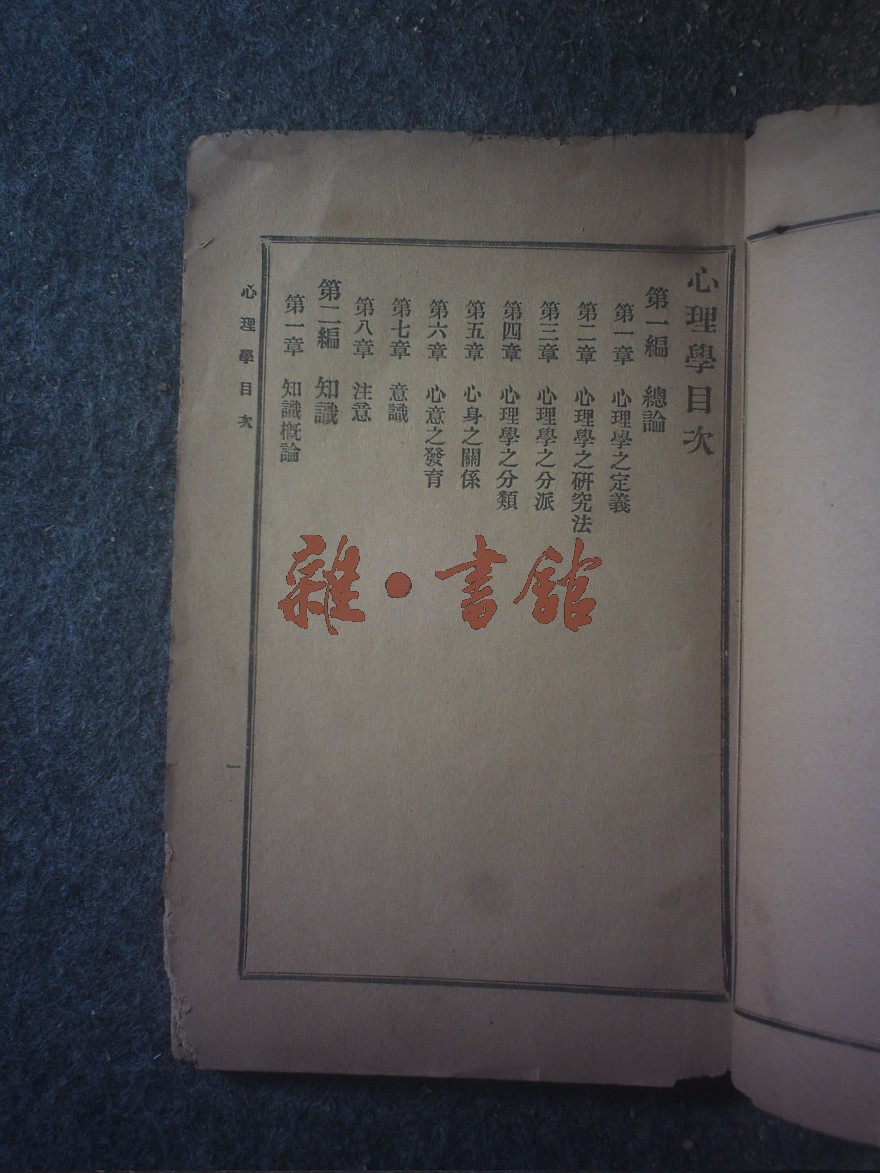 心理學目次
第一編　總論
第一章　心理學之定義
第二章　心理學之研究法
第三章　心理學之分派
第四章　心理學之分類
第五章　心身之關係
第六章　心意之發育
第七章　意識
第八章　注意
第二編　知識
第一章　知識概論
心理學目次
一
雜•書館